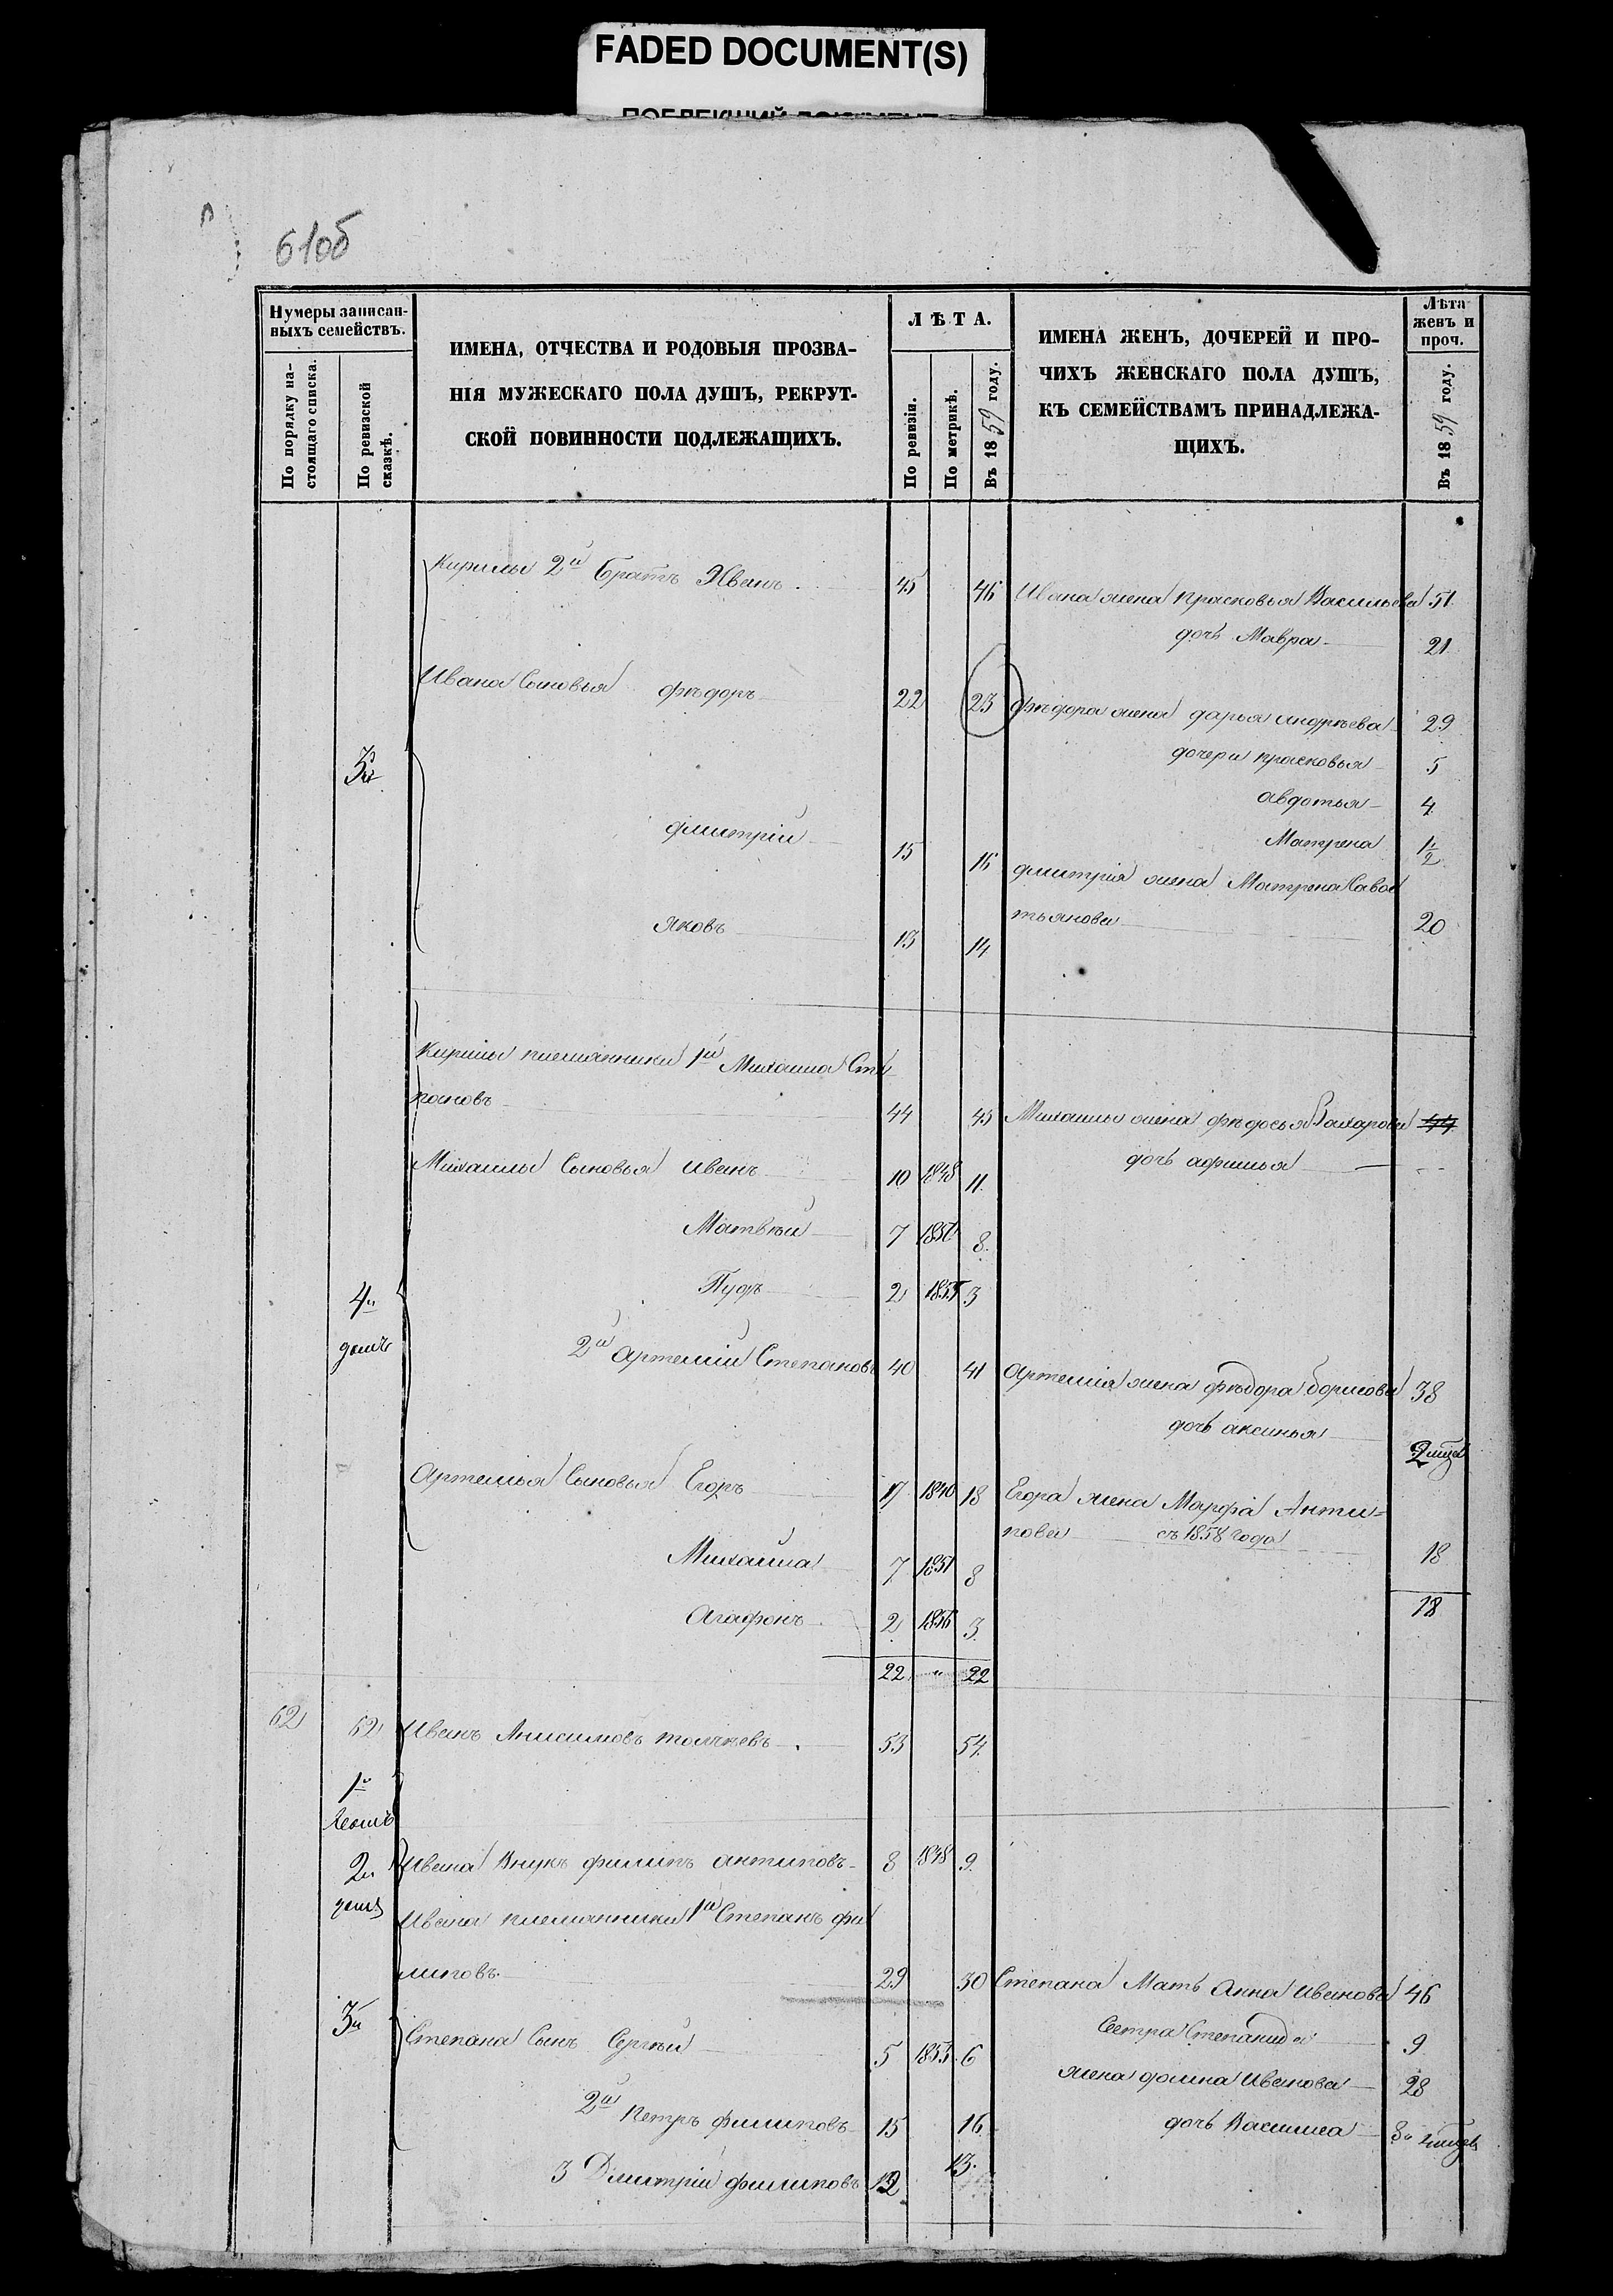 FADED DOCUMENT(S)
610б
Нумеры записан-
ныхъ семействъ.
По порядку на-
стоящаго списка.
По ревизской
сказкѣ.
ИМЕНА, ОТЧЕСТВА И РОДОВЫЯ ПРОЗВА-
НІЯ МУЖЕСКАГО ПОЛА ДУШЪ, РЕКРУТ-
СКОЙ ПОВИННОСТИ ПОДЛЕЖАЩИХЪ.
ЛѢТА.
По ревизіи.
По метрикѣ.
Въ 1859 году.
ИМЕНА ЖЕНЪ, ДОЧЕРЕЙ И ПРО-
ЧИХЪ ЖЕНСКАГО ПОЛА ДУШЪ,
КЪ СЕМЕЙСТВАМЪ ПРИНАДЛЕЖА-
ЩИХЪ.
Лѣта
женъ и
проч.
Въ 1859 году.
Кирилы 2й братъ Иванъ 45 46 Ивана жена Прасковья Васильева 51
дочь Мавра 21
Ивана Сыновья фѣдоръ 22 23 фѣдора жена дарья андрѣева 29
3й
дочери прасковья 5
авдотья 4
дмитрій 15 16 Матрена 1/2
дмитрія жена Матрена Сава
тьянова 20
яковъ 13 14
Кирилы племянники 1й Михаила Сте
пановъ 44 45 Михаилы жена фѣдосья Захарова 44
Михаилы Сыновья иванъ 10 1848 11 дочь афимья
Матвѣй 7 1850 8
Пудъ 2 1855 3
4й
домъ
2й артемій Степановъ 40 41 Артемія жена фѣдора борисова 38
дочь аксинья 2 мца
Артемья Сыновья Егоръ 17 1840 18 Егора жена Марфа Анти=
пова съ 1858 года 18
Михаила 7 1851 8
Агафонъ 2 1856 3 18
22 " 22
62 62 Иванъ Анисимовъ толчѣевъ 53 54
1й
домъ
2й Ивана Внукъ филипъ антиповъ 8 1848 9
домъ
Ивана племянники 1й Степанъ фи
липовъ 29 30 Степана Мать Анна Иванова 46
3й
Сестра Степанида 9
Степана Сынъ Сергѣй 5 1853 6
жена домна Иванова 28
2й Петръ филиповъ 15 16 дочь Василиса 8
3 Дмитрій филиповъ 12 13